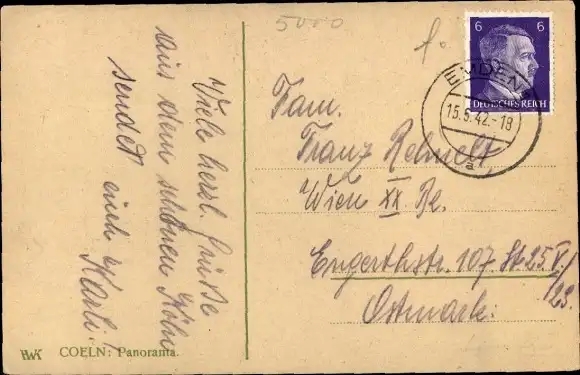 5000
Viele herzl. Grüße
aus dem schönen Köln
sendet euch
Karli!
6 6
DEUTSCHES REICH
EMDEN
15.5.42.-18
a
Fam.
Franz
Wien XX Be.
Engerthstr. 107 St. 25 V./
23.
Ostmark.
HWK COELN: Panorama.